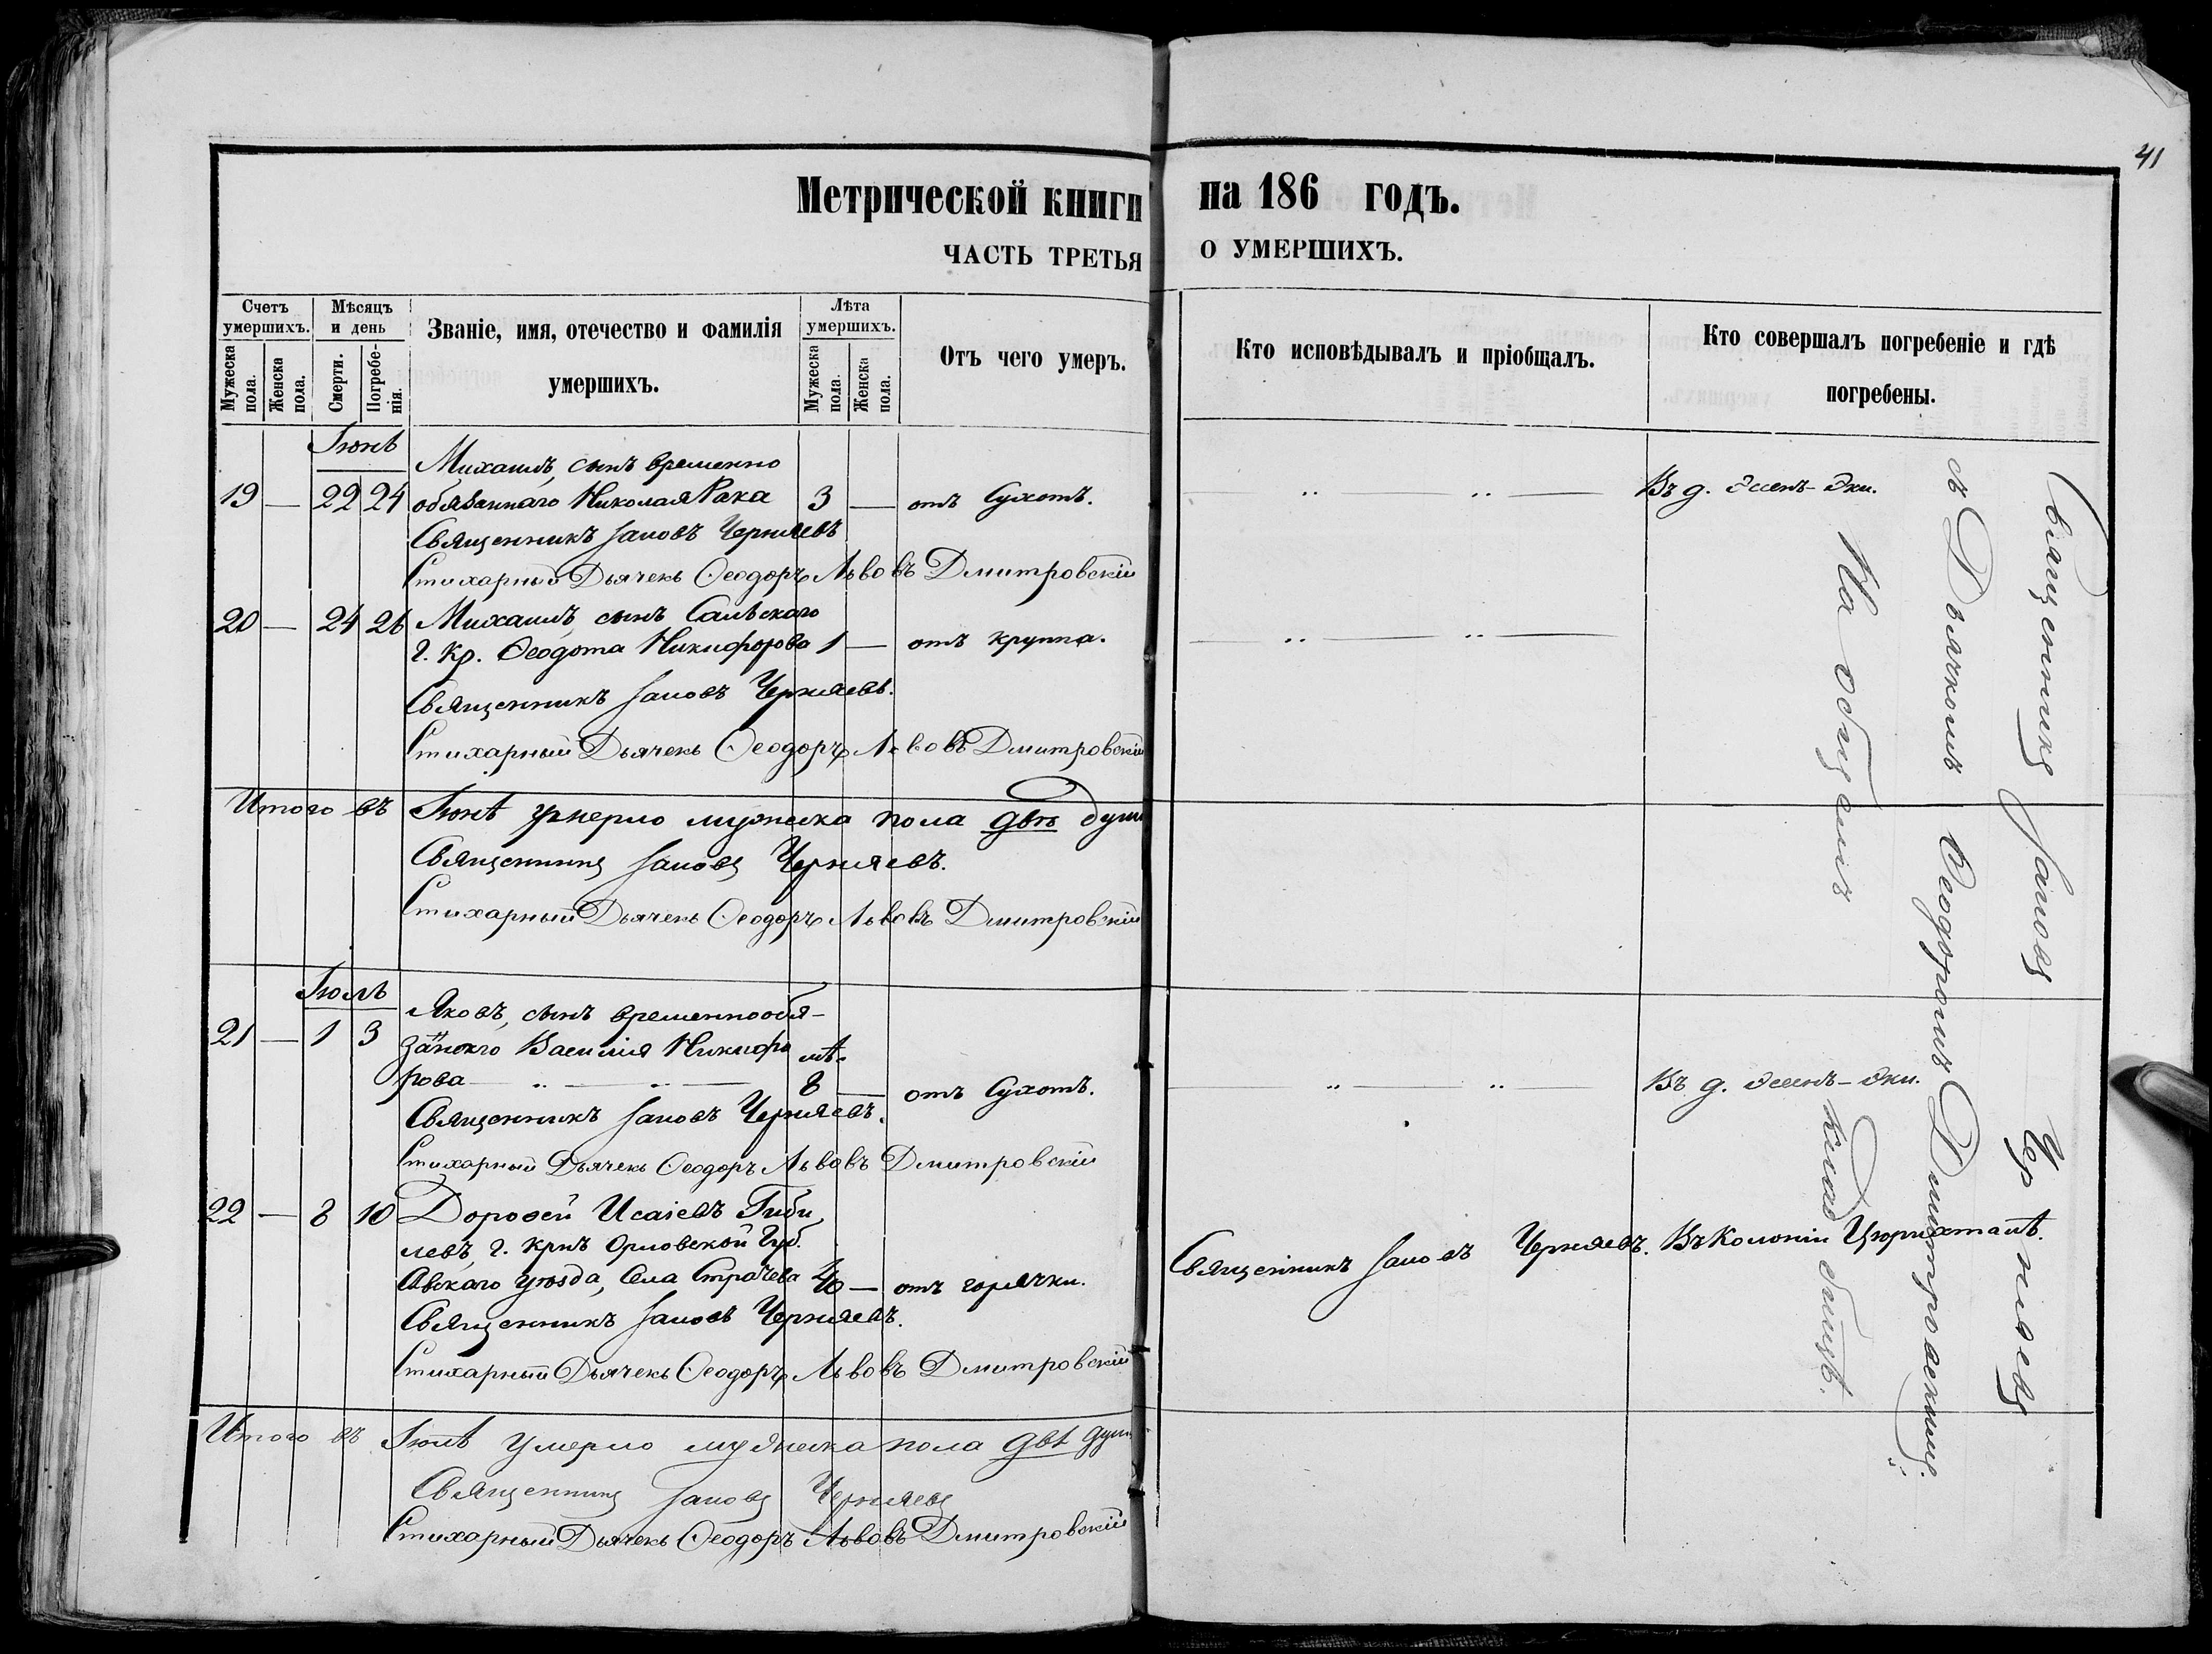 41
Метрической книги на 186 годъ.
ЧАСТЬ ТРЕТЬЯ О УМЕРШИХЪ.
Счетъ умершихъ.
Мужеска пола.
Женска пола.
Мѣсяцъ и день
Смерти.
Погребенія.
Званіе, имя, отечество и фамилія умершихъ.
Лѣта умершихъ.
Мужеска пола.
Женска пола.
Отъ чего умеръ.
Кто исповѣдывалъ и пріобщалъ.
Кто совершалъ погребеніе и гдѣ погребены.
Іюнь
Михаилъ, сынъ временно
19 — 22 24 обязаннаго Николая Рака 3 — отъ Сухотъ. Въ д.
Священникъ Іаковъ Черняевъ
Стихарный Дьячекъ Ѳеодоръ Львовъ Дмитровскій
20 — 24 26 Михаилъ, сынъ Сальскаго
г. Кр. Ѳеодота Никифорова 1 — отъ круппа.
Священникъ Іаковъ Черняевъ.
Стихарный Дьячекъ Ѳеодоръ Львовъ Дмитровскій
Итого въ Іюнѣ умерло мужеска пола двѣ души
Священникъ Іаковъ Черняевъ.
Стихарный Дьячекъ Ѳеодоръ Львовъ Дмитровскій
Іюль
Яковъ, сынъ временнообя-
21 — 1 3 заннаго Василія Никифо
рова 8 — отъ Сухотъ. Въ д.
Священникъ Іаковъ Черняевъ.
Стихарный Дьячекъ Ѳеодоръ Львовъ Дмитровскій
22 — 8 10 Дороѳей Исаіевъ
левъ, г. крнъ Орловской Губ.
Сѣвскаго уѣзда, Села Страчева 40 — отъ горячки. Священникъ Іаковъ Черняевъ. Въ Колоніи Цюрихталѣ.
Священникъ Іаковъ Черняевъ.
Стихарный Дьячекъ Ѳеодоръ Львовъ Дмитровскій
Итого въ Іюлѣ умерло мужеска пола двѣ души
Священникъ Іаковъ Черняевъ
Стихарный Дьячекъ Ѳеодоръ Львовъ Дмитровскій
Священникъ Іаковъ Черняевъ
съ Дьячкомъ Ѳеодоромъ Дмитровскимъ.
На общемъ кладбищѣ.